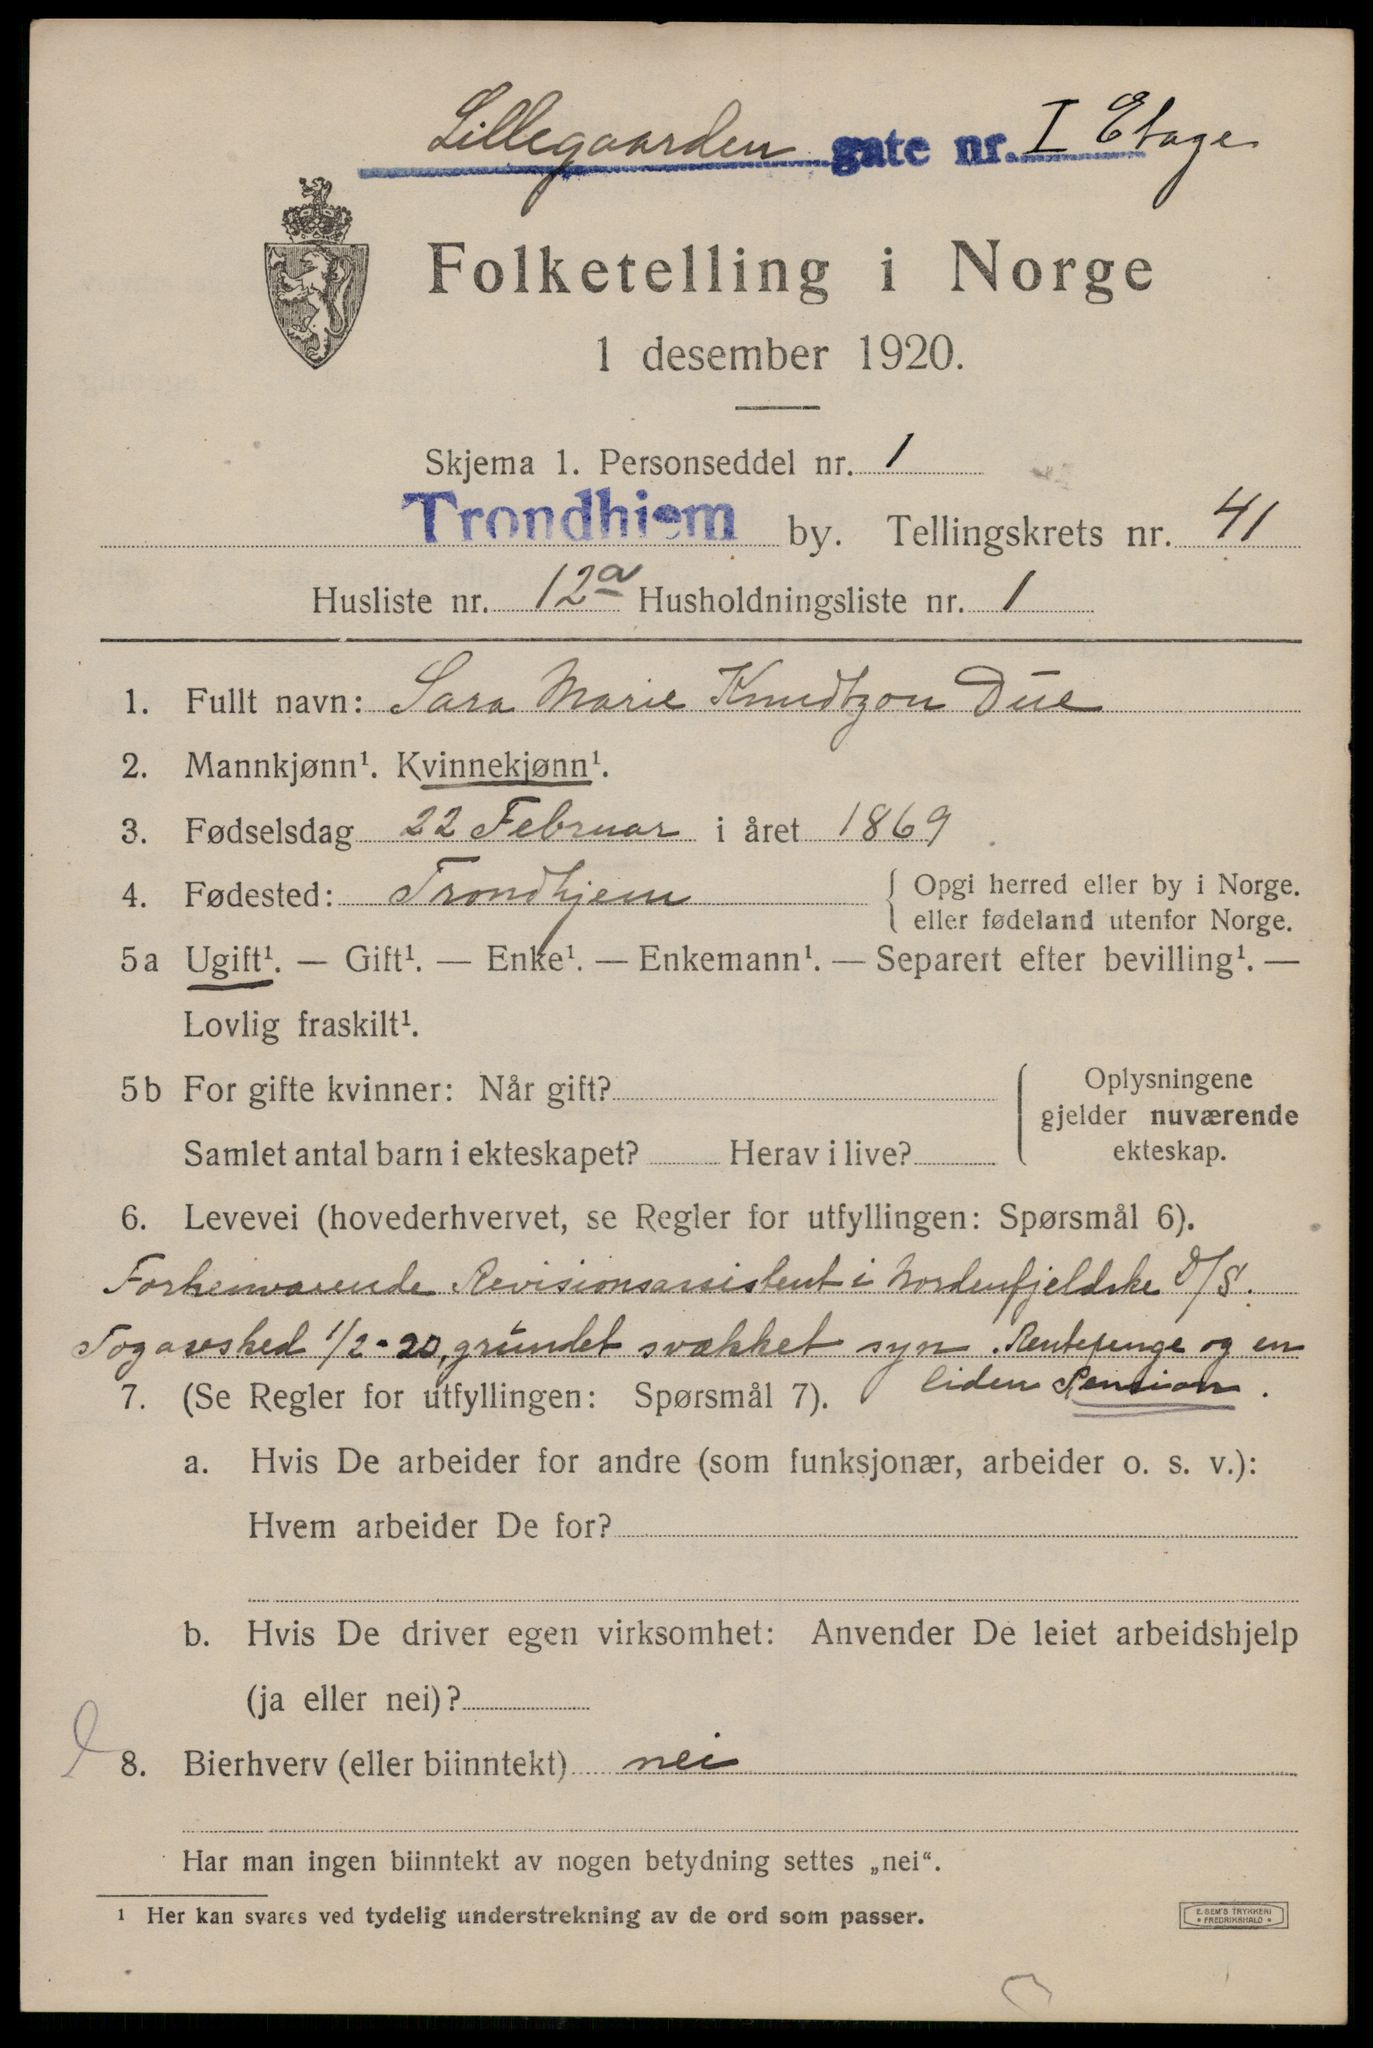 Lillegaarden gate nr. I Etage
Folketelling i Norge
1 desember 1920.
Skjema 1. Personseddel nr. 1
Trondhjem by. Tellingskrets nr. 41
Husliste nr. 12a Husholdningsliste nr. 1
1. Fullt navn: Sara Marie Knudtzon Due
2. Mannkjønn¹. Kvinnekjønn¹.
3. Fødselsdag 22 Februar i året 1869
4. Fødested: Trondhjem { Opgi herred eller by i Norge.
eller fødeland utenfor Norge.
5a Ugift¹. — Gift¹. — Enke¹. — Enkemann¹. — Separert efter bevilling¹. —
Lovlig fraskilt¹.
5b For gifte kvinner: Når gift?
Samlet antal barn i ekteskapet? Herav i live?
Oplysningene
gjelder nuværende
ekteskap.
6. Levevei (hovederhvervet, se Regler for utfyllingen: Spørsmål 6).
Forhenværende Revisionsassistent i Nordenfjeldske D/S.
Tog avsked 1/2-20, grundet svækket syn. Rentepenge og en
liden Pension.
7. (Se Regler for utfyllingen: Spørsmål 7).
a. Hvis De arbeider for andre (som funksjonær, arbeider o. s. v.):
Hvem arbeider De for?
b. Hvis De driver egen virksomhet: Anvender De leiet arbeidshjelp
(ja eller nei)?
8. Bierhverv (eller biinntekt) nei
Har man ingen biinntekt av nogen betydning settes „nei“.
¹ Her kan svares ved tydelig understrekning av de ord som passer.
E. SEM'S TRYKKERI
* FREDRIKSHALD *